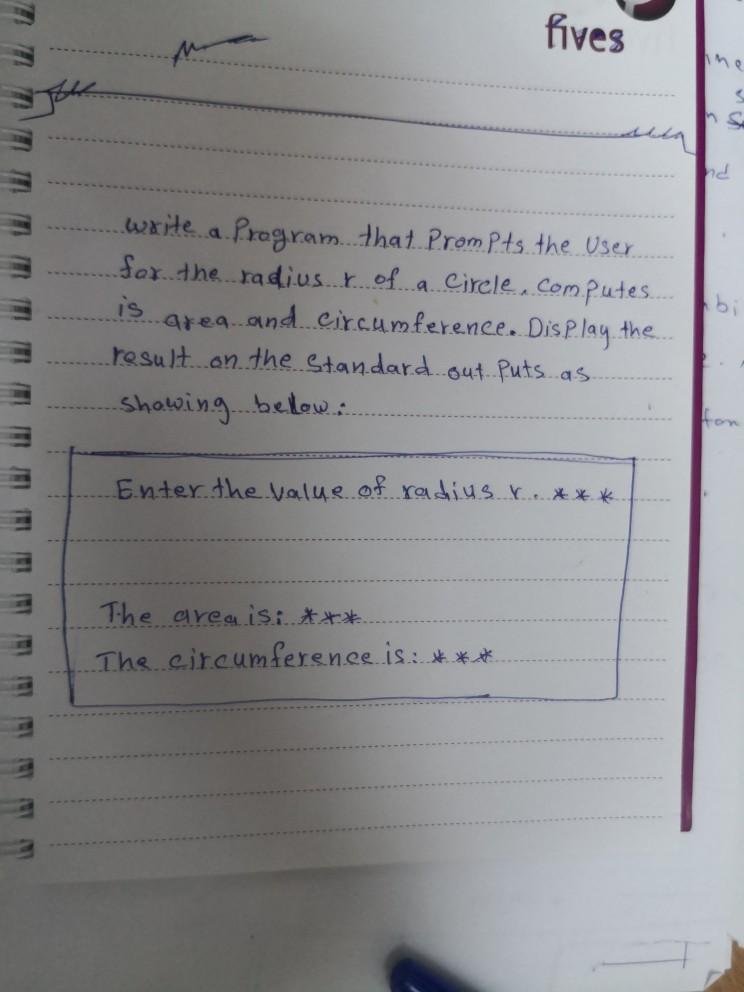 fives
ine
s
nd
write a Program that Prompts the User
for the radius r of a circle, computes
is area and circumference. Display the
result on the standard out puts as
showing below:
Enter the value of radius r. ***
The area is: ***
The circumference is: ***